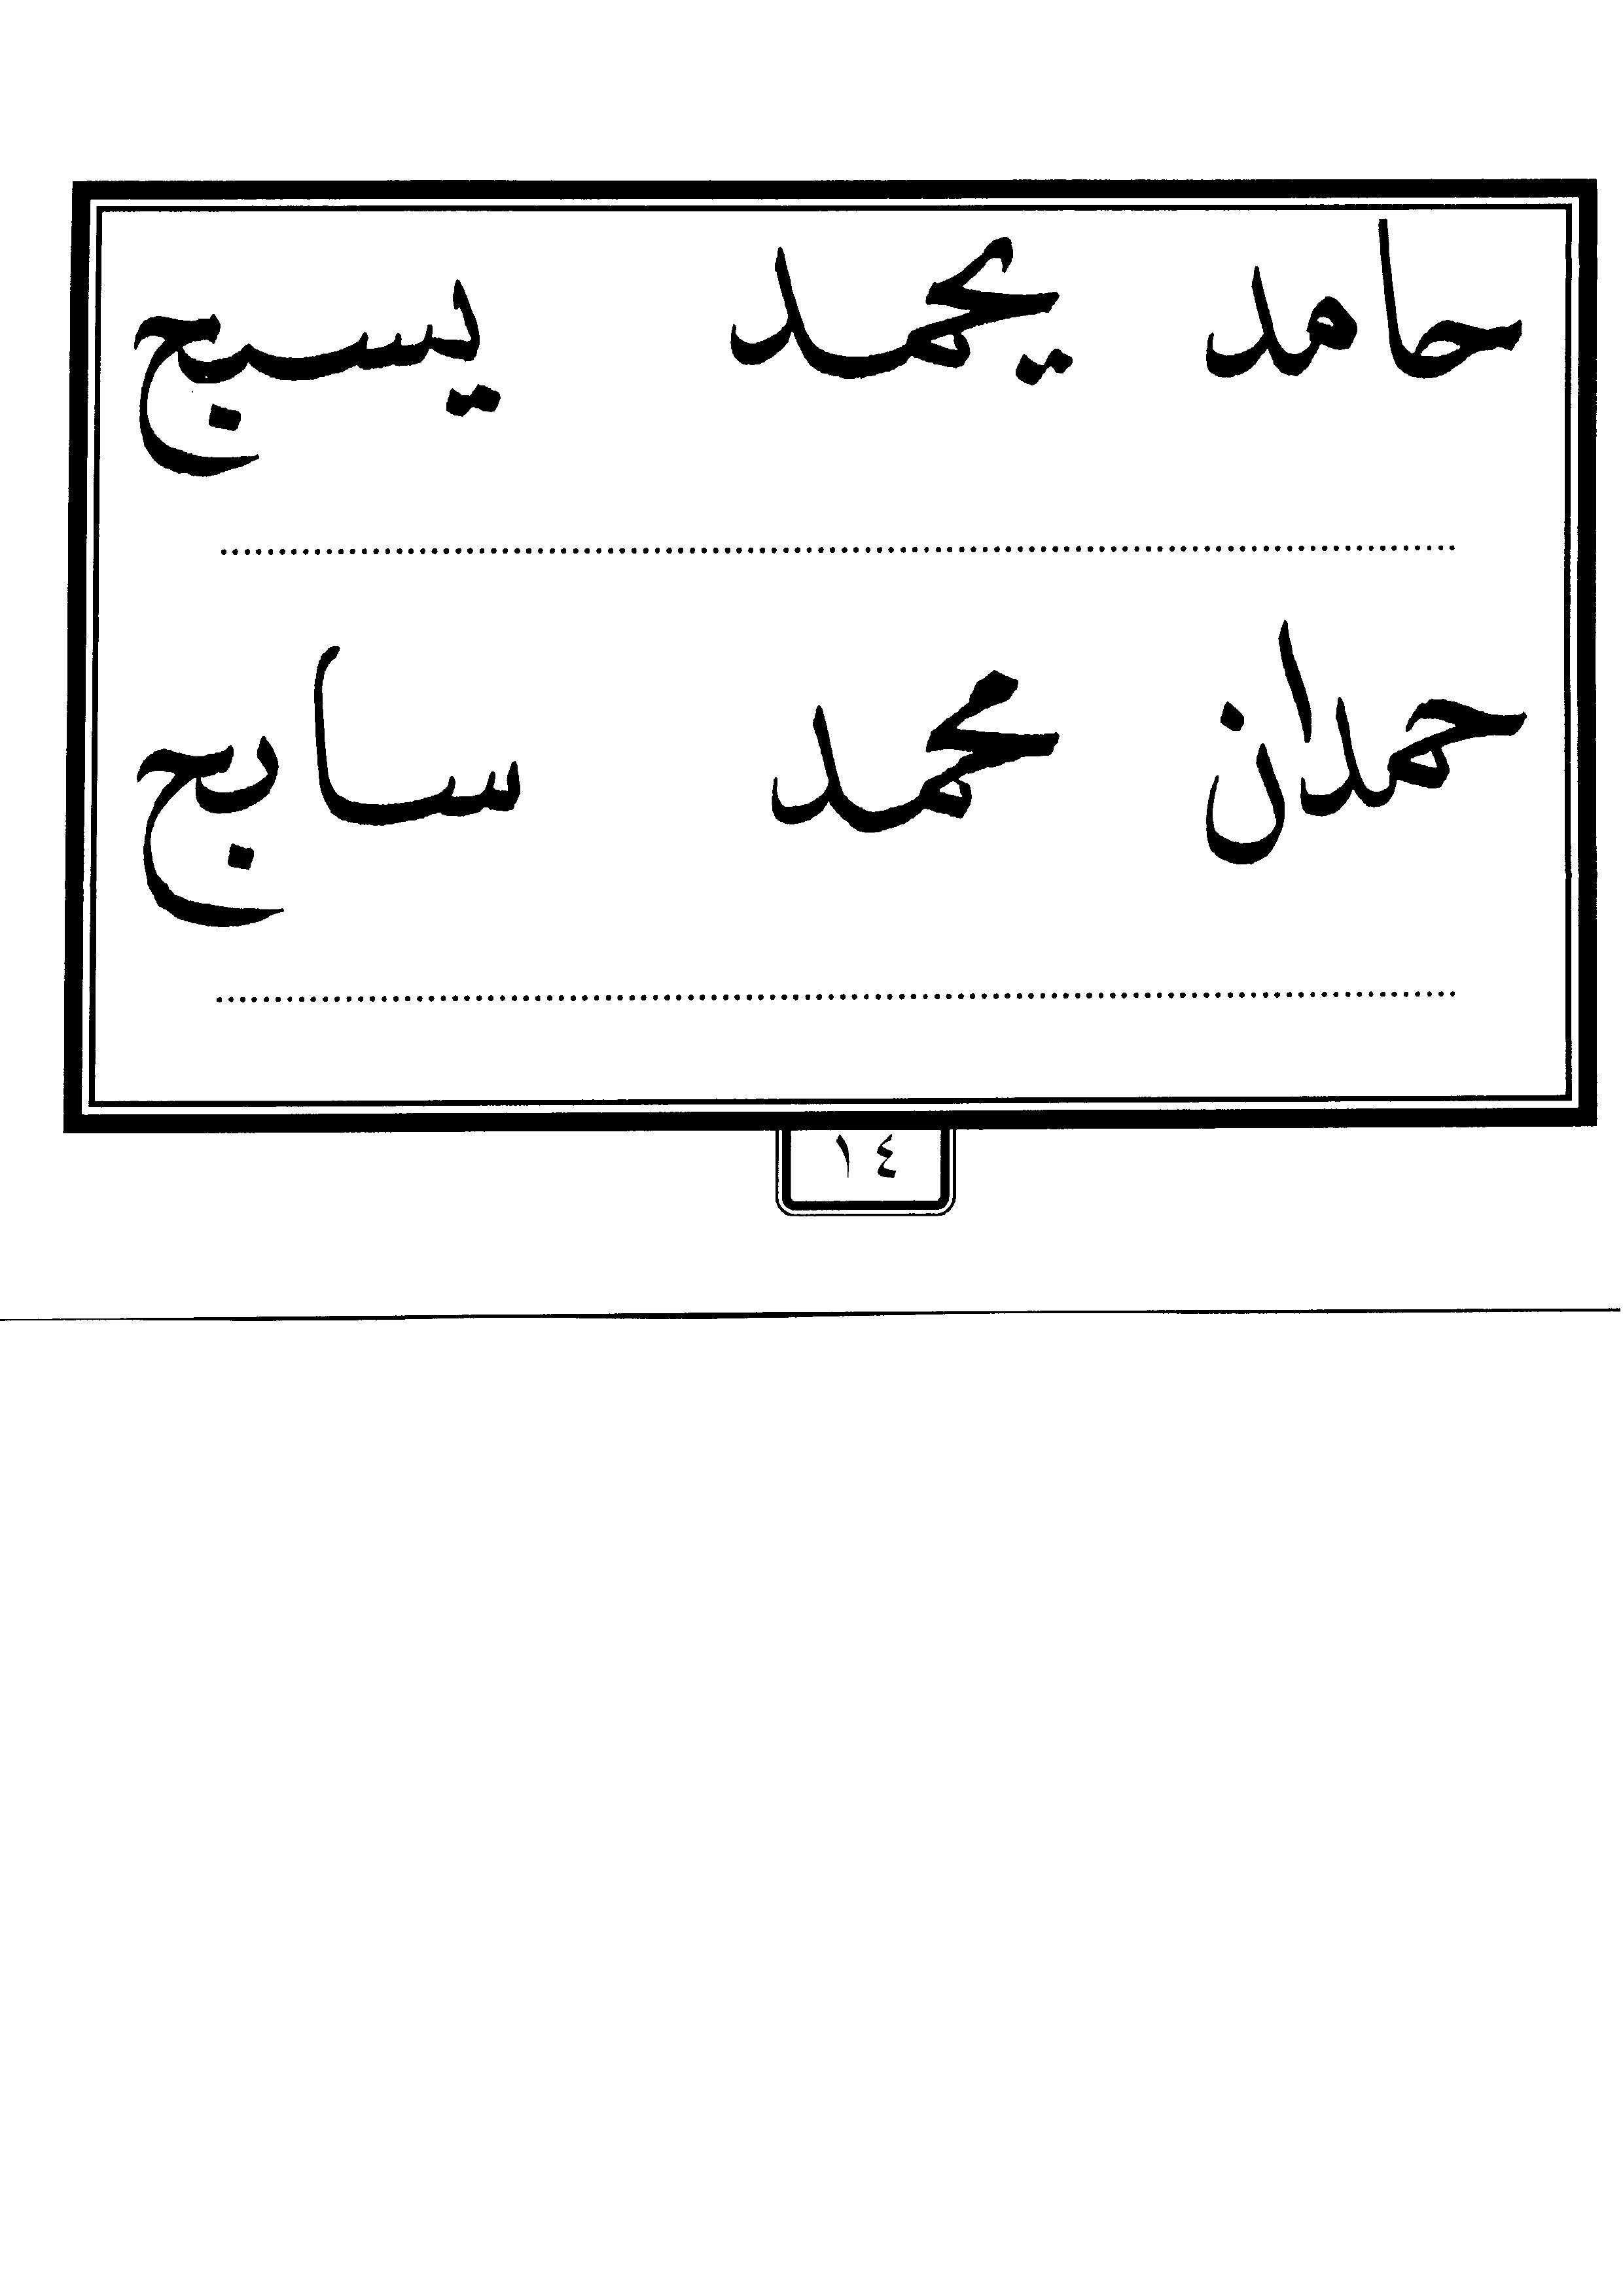 حامد يحمد يسبح
حمدان محمد سابح
١٤